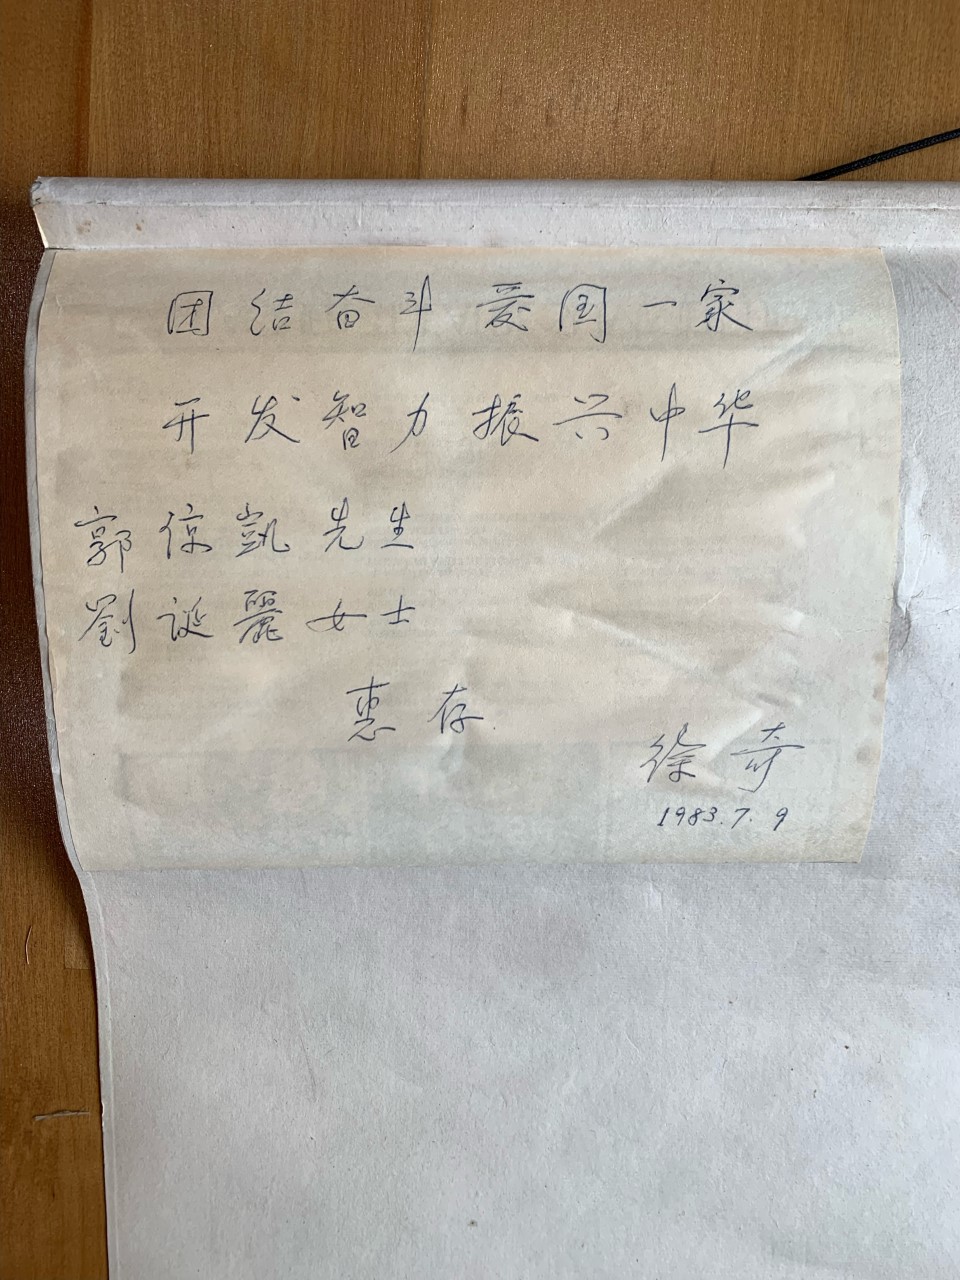 团结奋斗爱国一家
开发智力振兴中华
郭倞凱先生
劉誕麗女士
惠存.
徐奇
1983.7.9